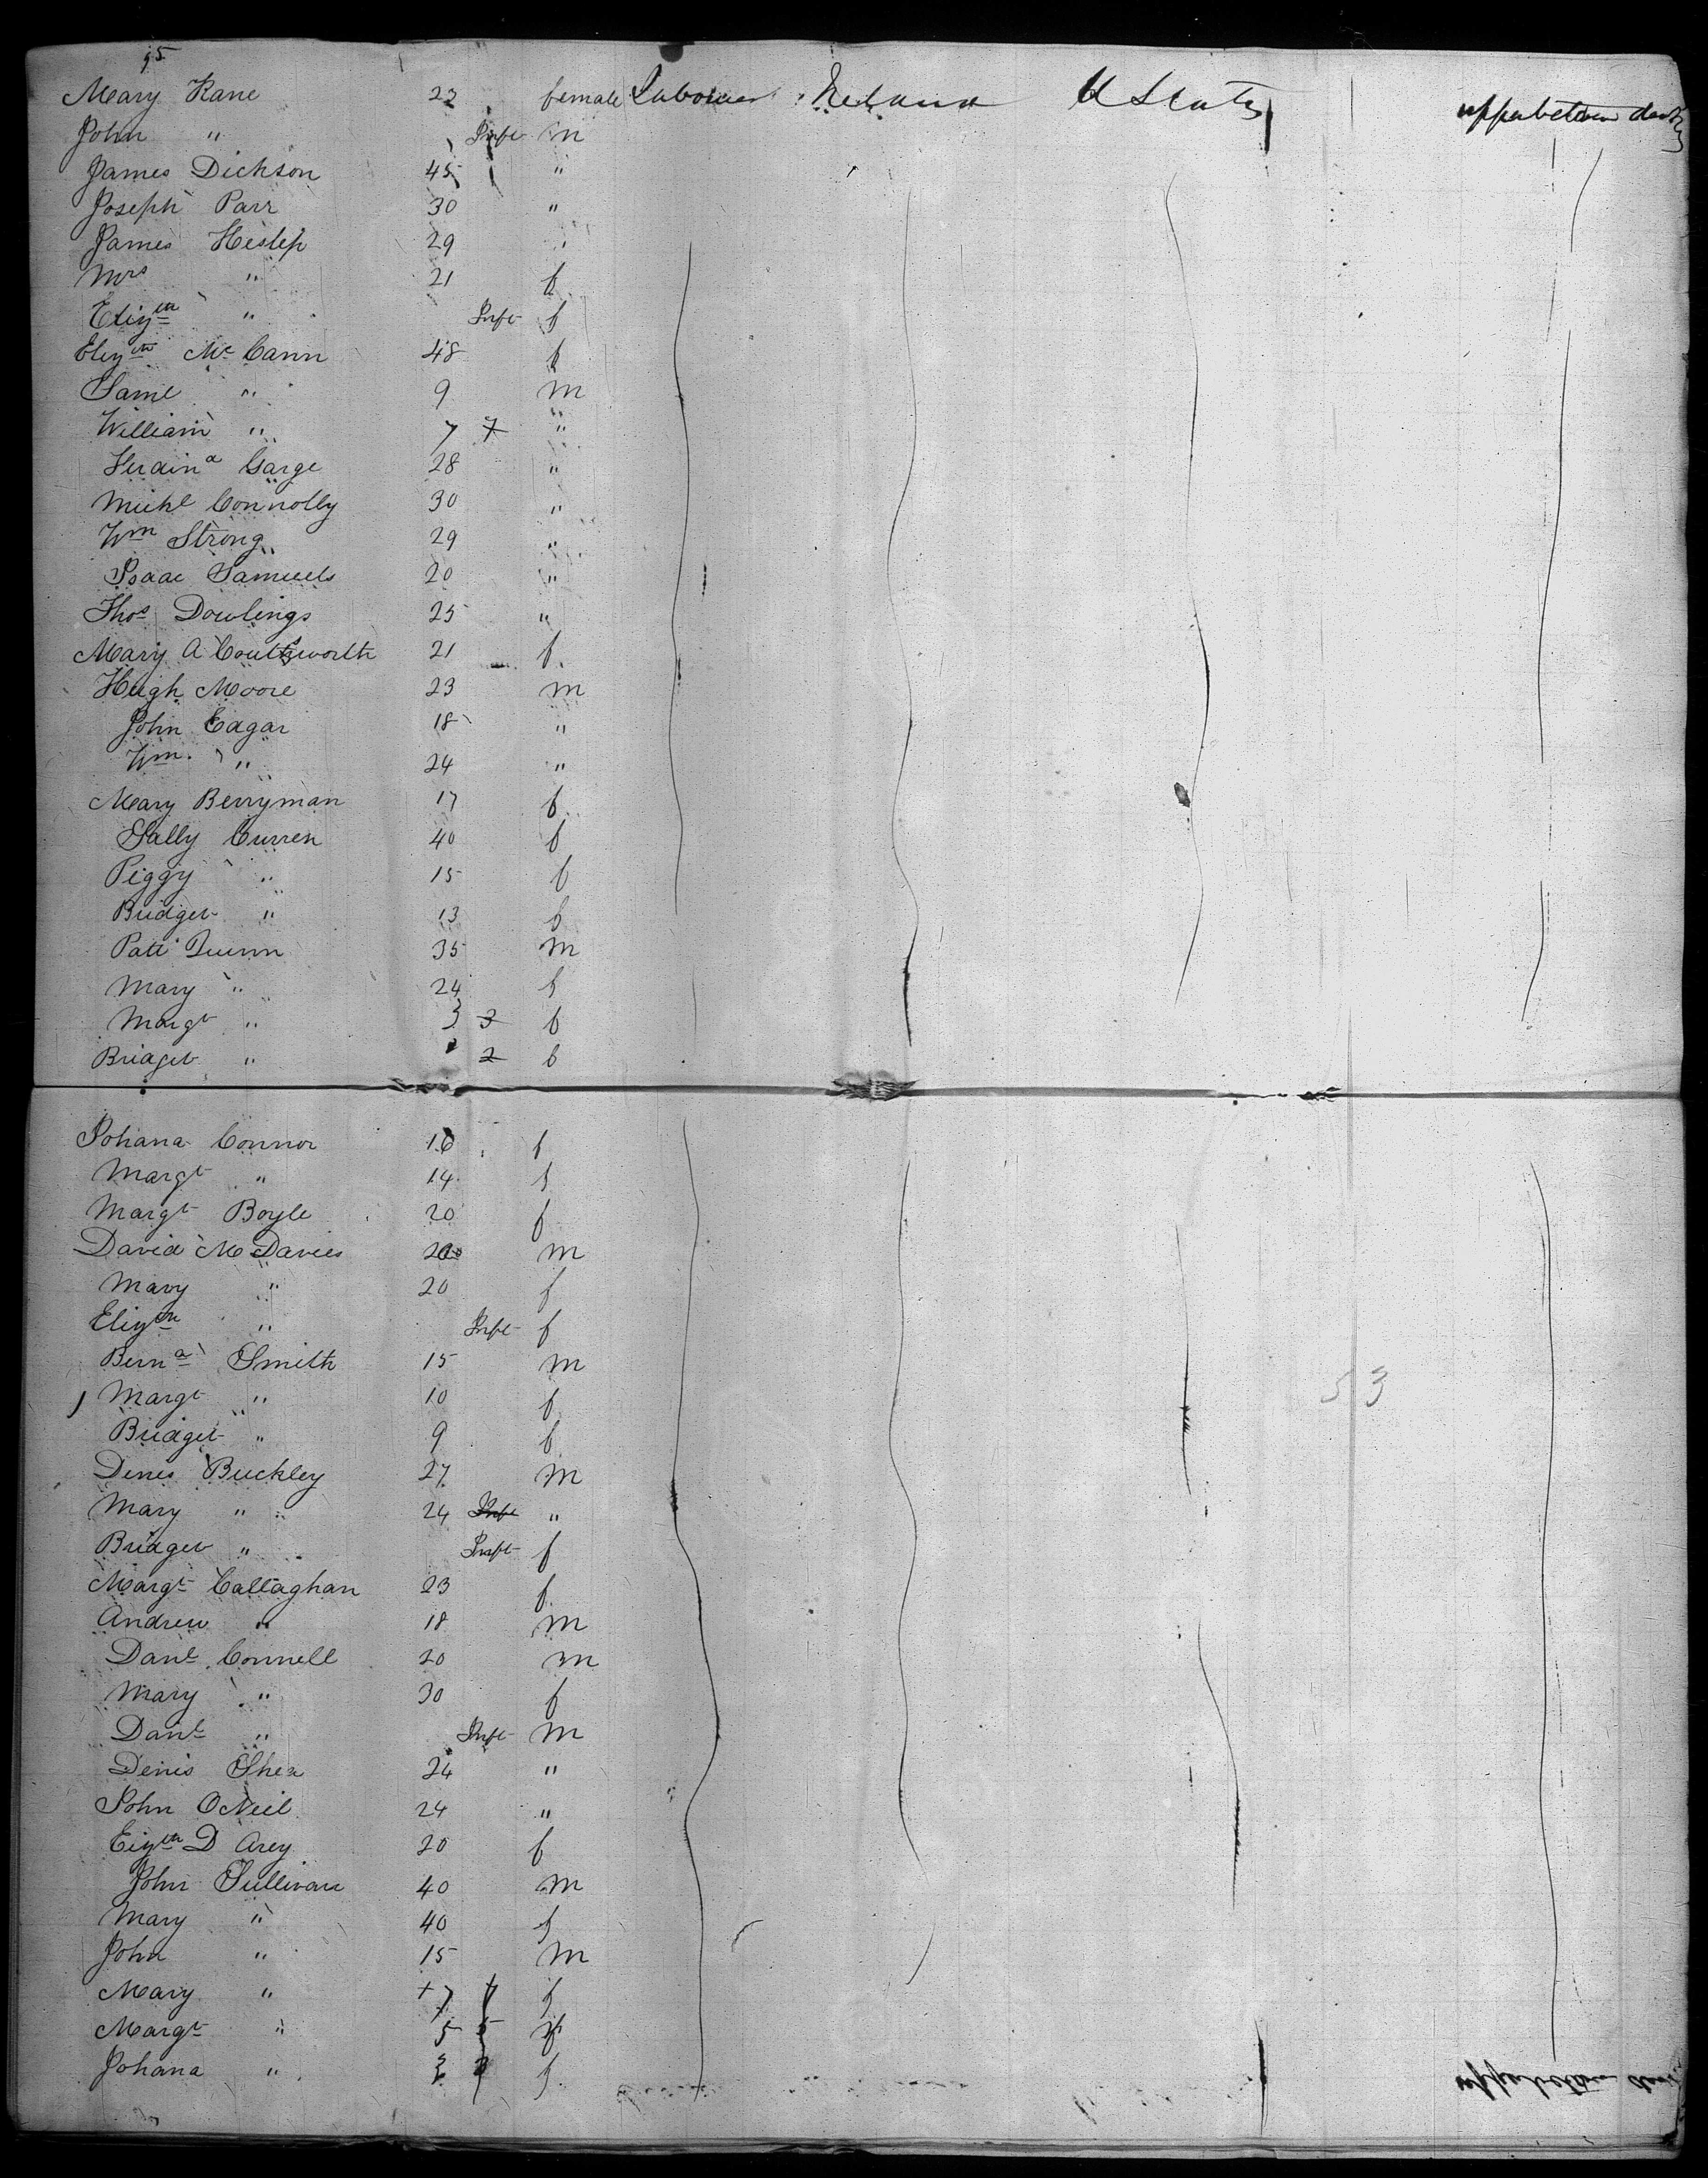 95
Mary Kane 22 female Laborer Ireland U States upper between decks
John " Inft m
James Dickson 45 "
Joseph Parr 30 "
James Heslip 29 "
Mrs " 21 f
Elizth " Inft f
Elizth McCann 48 f
Saml " 9 m
William " 7 7 "
Ferdina Garge 28 "
Michl Connolly 30 "
Wm Strong 29 "
Isaac Samuels 20 "
Thos Dowlings 25 "
Mary A Coultsworth 21 f
Hugh Moore 23 m
John Eagar 18 "
Wm. " 24 "
Mary Berryman 17 f
Sally Curren 40 f
Peggy " 15 f
Bridget " 13 f
Patt Quinn 35 m
Mary " 24 f
Margt " 3 3 f
Bridget " 2 f
Johana Connor 16 f
Margt " 14 f
Margt Boyle 20 f
David McDavies m
Mary " 20 f
Elizth " Inft f
Berna Smith 15 m
Margt " 10 f
Bridget " 9 f
Denis Buckley 27 m
Mary " " 24 Inft "
Bridget " Inft f
Margt Callaghan 23 f
Andrew " 18 m
Danl Connell 20 m
Mary " 30 f
Danl " Inft m
Denis Shea 24 "
John ONeil 24 "
Eizth D Arey 20 f
John Sullivan 40 m
Mary " 40 f
John " 15 m
Mary " 7 f
Margt " 5 5 f
Johana " 3 f
53